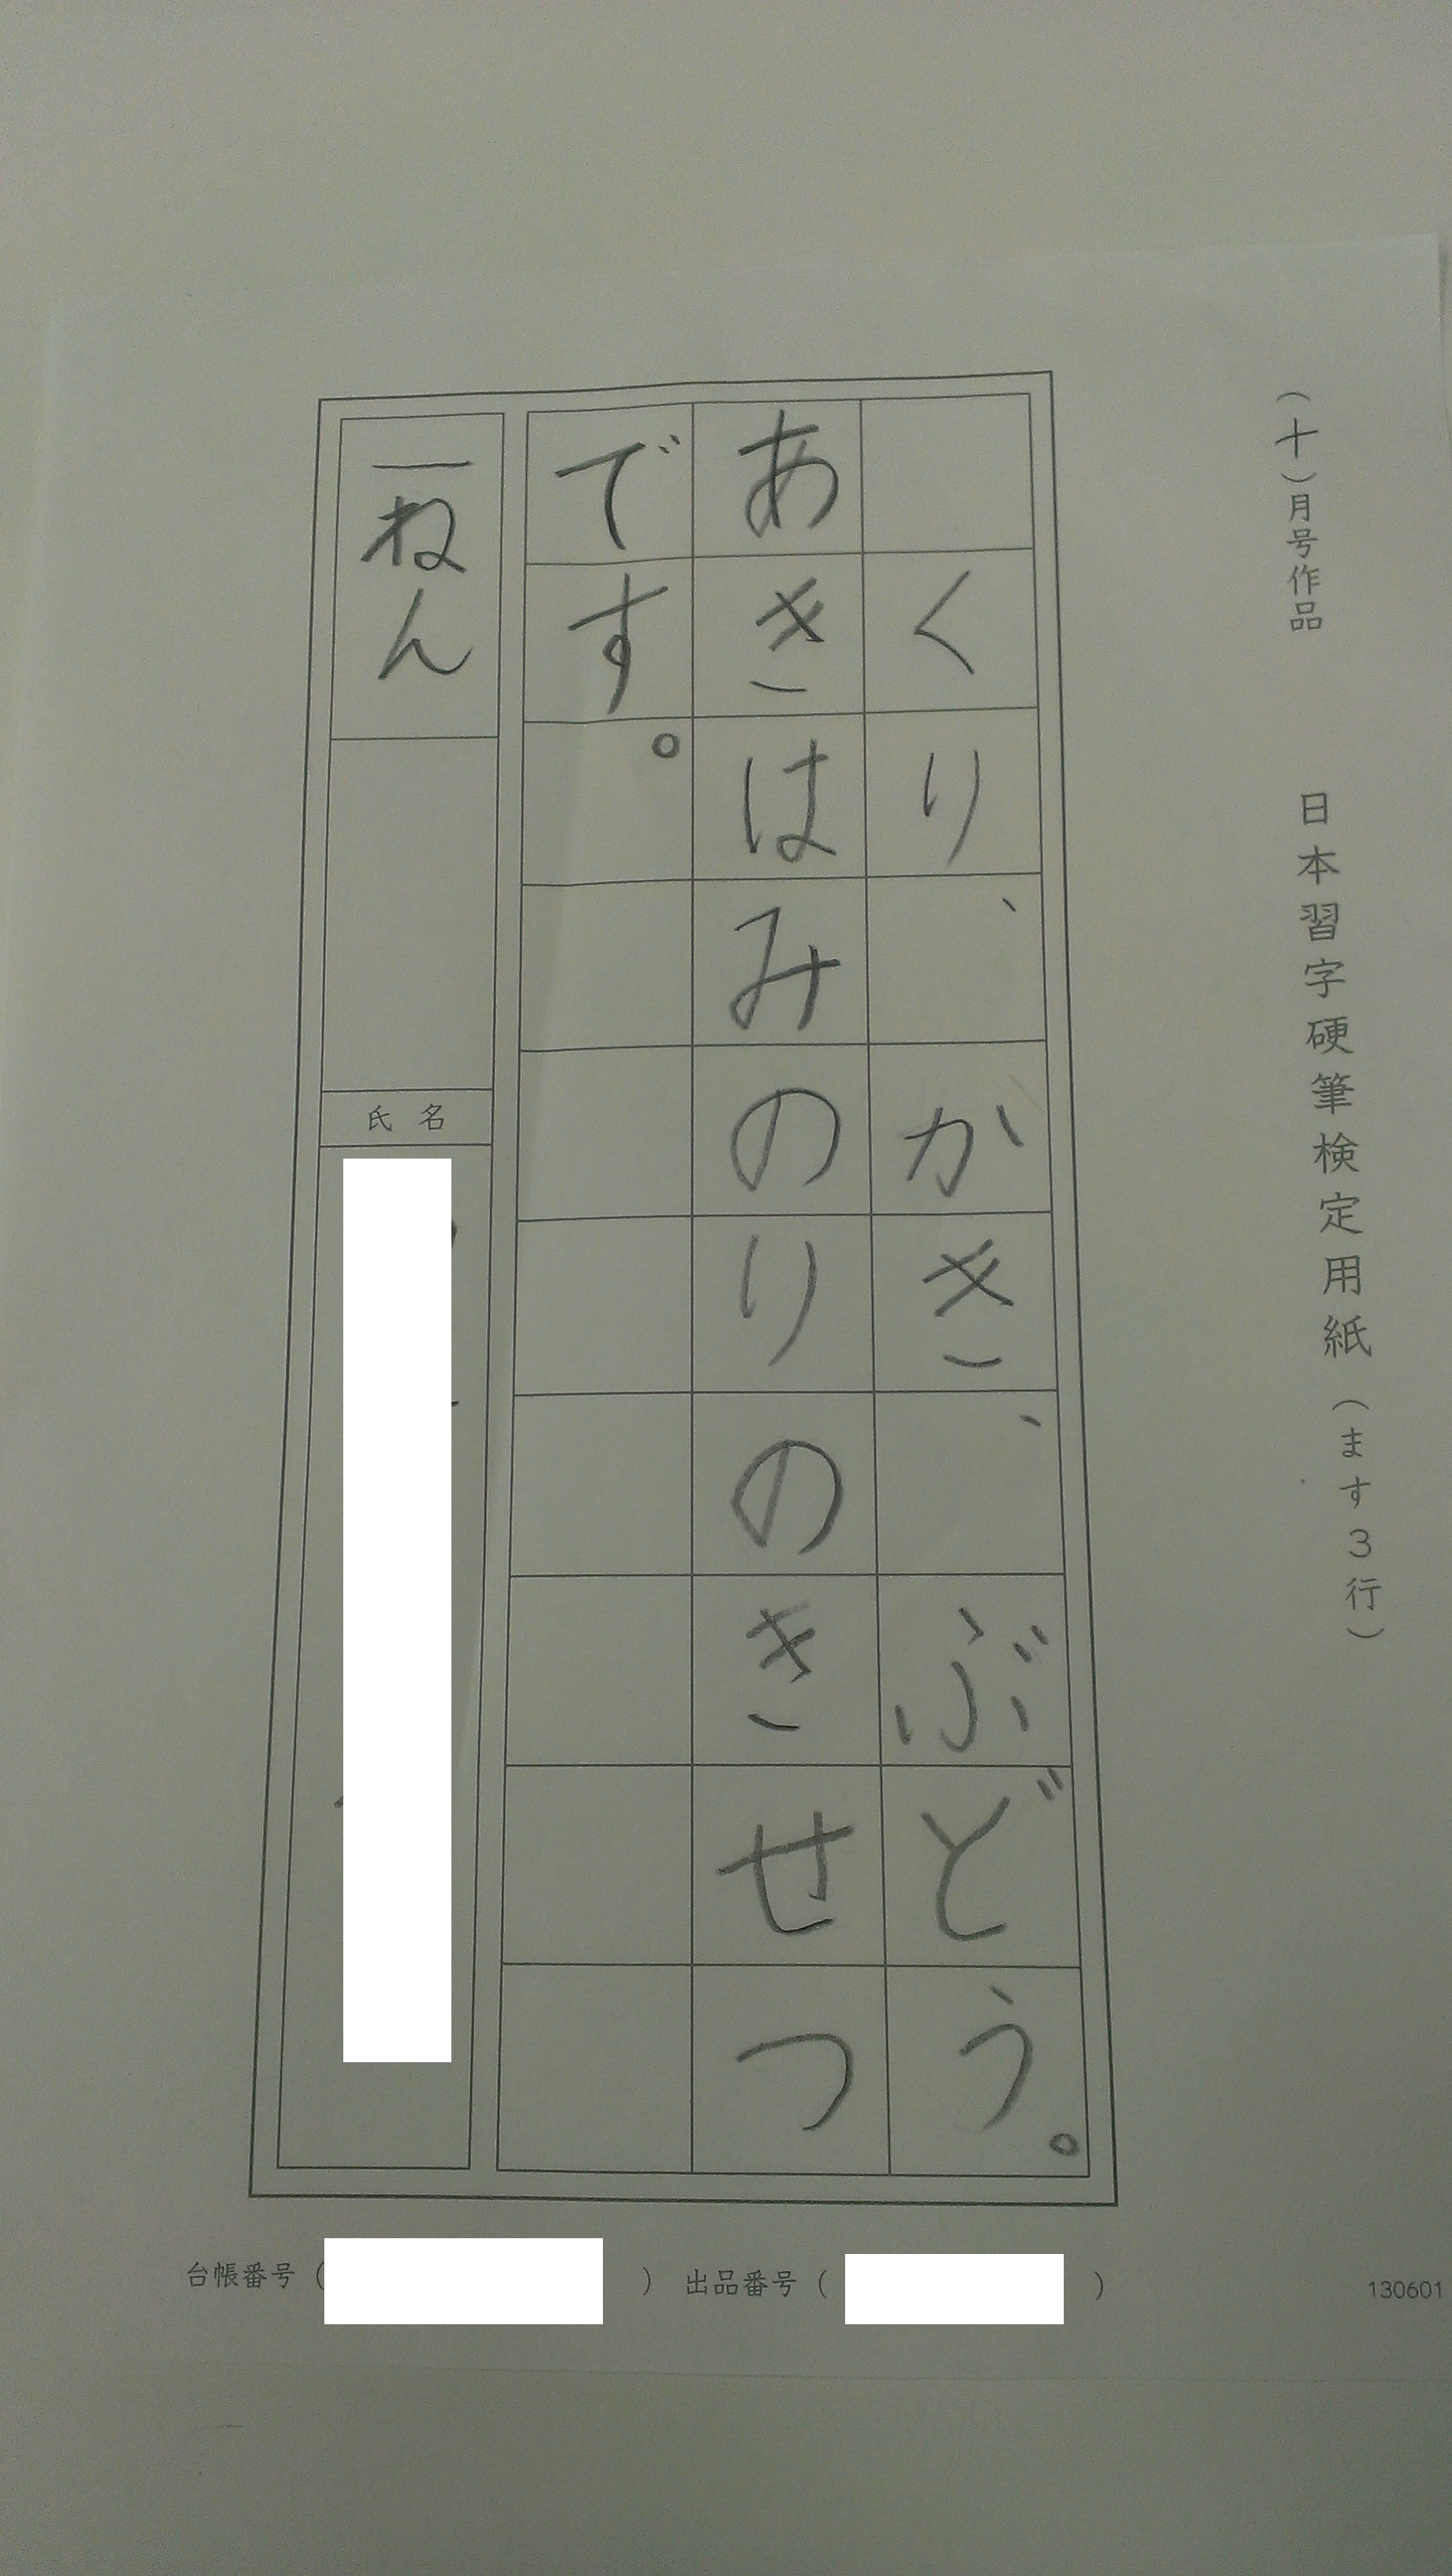 （十）月号作品　日本習字硬筆検定用紙（ます3行）
くり、かき、ぶどう。
あきはみのりのきせつ
です。
一ねん
氏名
台帳番号（　）出品番号（　）
130601